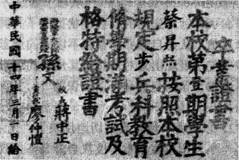 卒業證書
本校第壹期學生
蔡昇熙按照本校
規定步兵科教育
修學期滿考試及
格特給證書
孫文
校長蔣中正
廖仲愷
中華民國十四年三月一日給